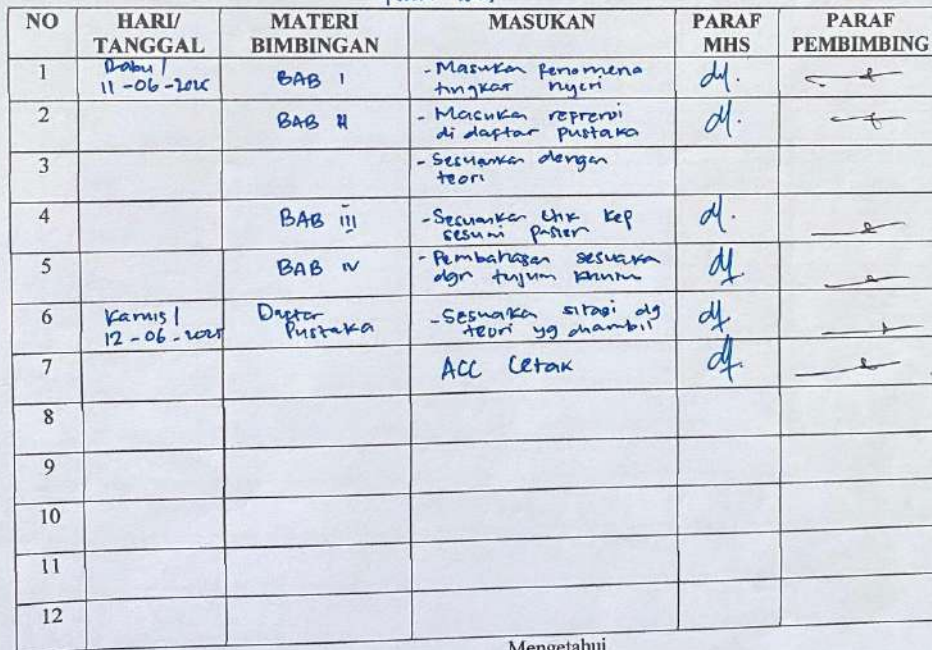 NO HARI/ TANGGAL MATERI BIMBINGAN MASUKAN PARAF MHS PARAF PEMBIMBING
1 Rabu / BAB I - Masukan fenomena
11-06-2025 tingkat nyeri
2 BAB II - Masukan referensi
di daftar pustaka
3 - Sesuaikan dengan
teori
4 BAB III - Sesuaikan kep
sesuai pasien
5 BAB IV - Pembahasan sesuaikan
dgn tujuan
6 Kamis / Daftar - Sesuaikan sitasi dg
12-06-2025 Pustaka teori yg diambil
7 ACC Cetak
8
9
10
11
12
Mengetahui